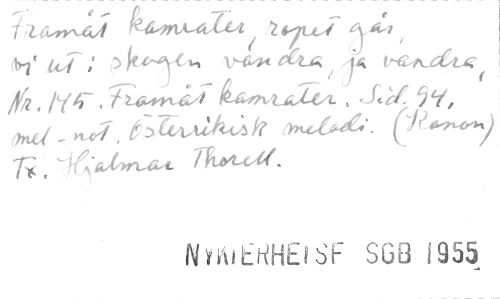 Framåt kamrater, ropet går,
vi ut i skogen vandra, ja vandra,
Nr. 145. Framåt kamrater. Sid. 94,
mel-not. Österrikisk melodi. (Kanon)
Tx. Hjalmar Thorell.
NYKTERHETSF SGB 1955